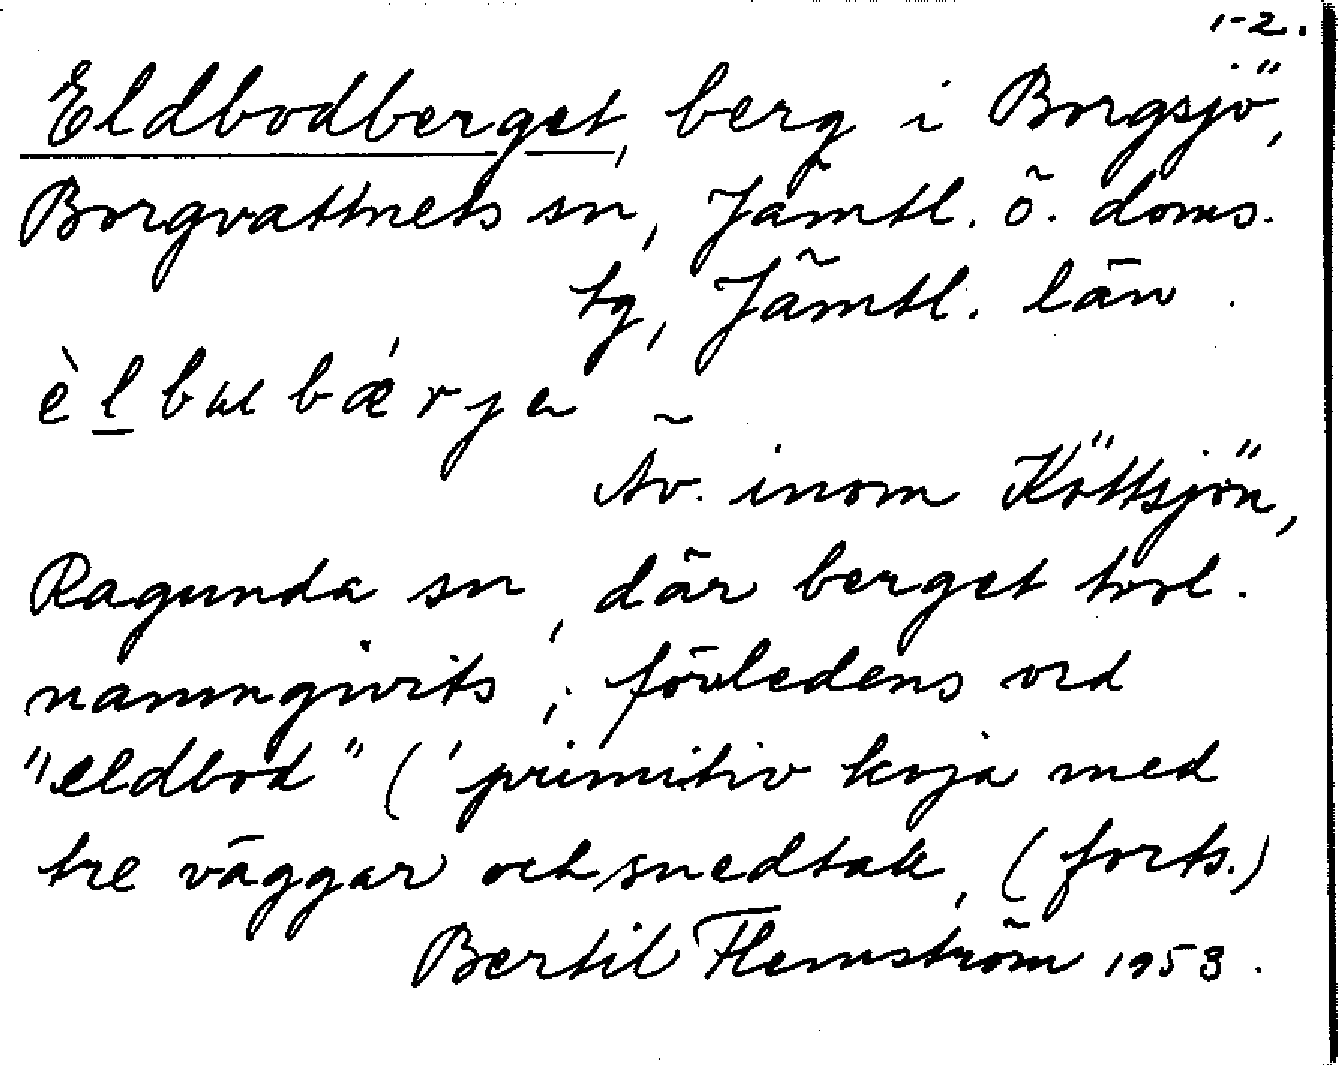 1-2.
Eldbodberget, berg i Borgsjö,
Borgvattnets sn, Jämtl. ö. doms.
tg, Jämtl. län.
èlbubǽrjen
Äv. inom Köttsjön,
Ragunda sn, där berget trol.
namngivits; förledens ord
"eldbod" ('primitiv koja med
tre väggar och snedtak, (forts.)
Bertil Flemström 1953.